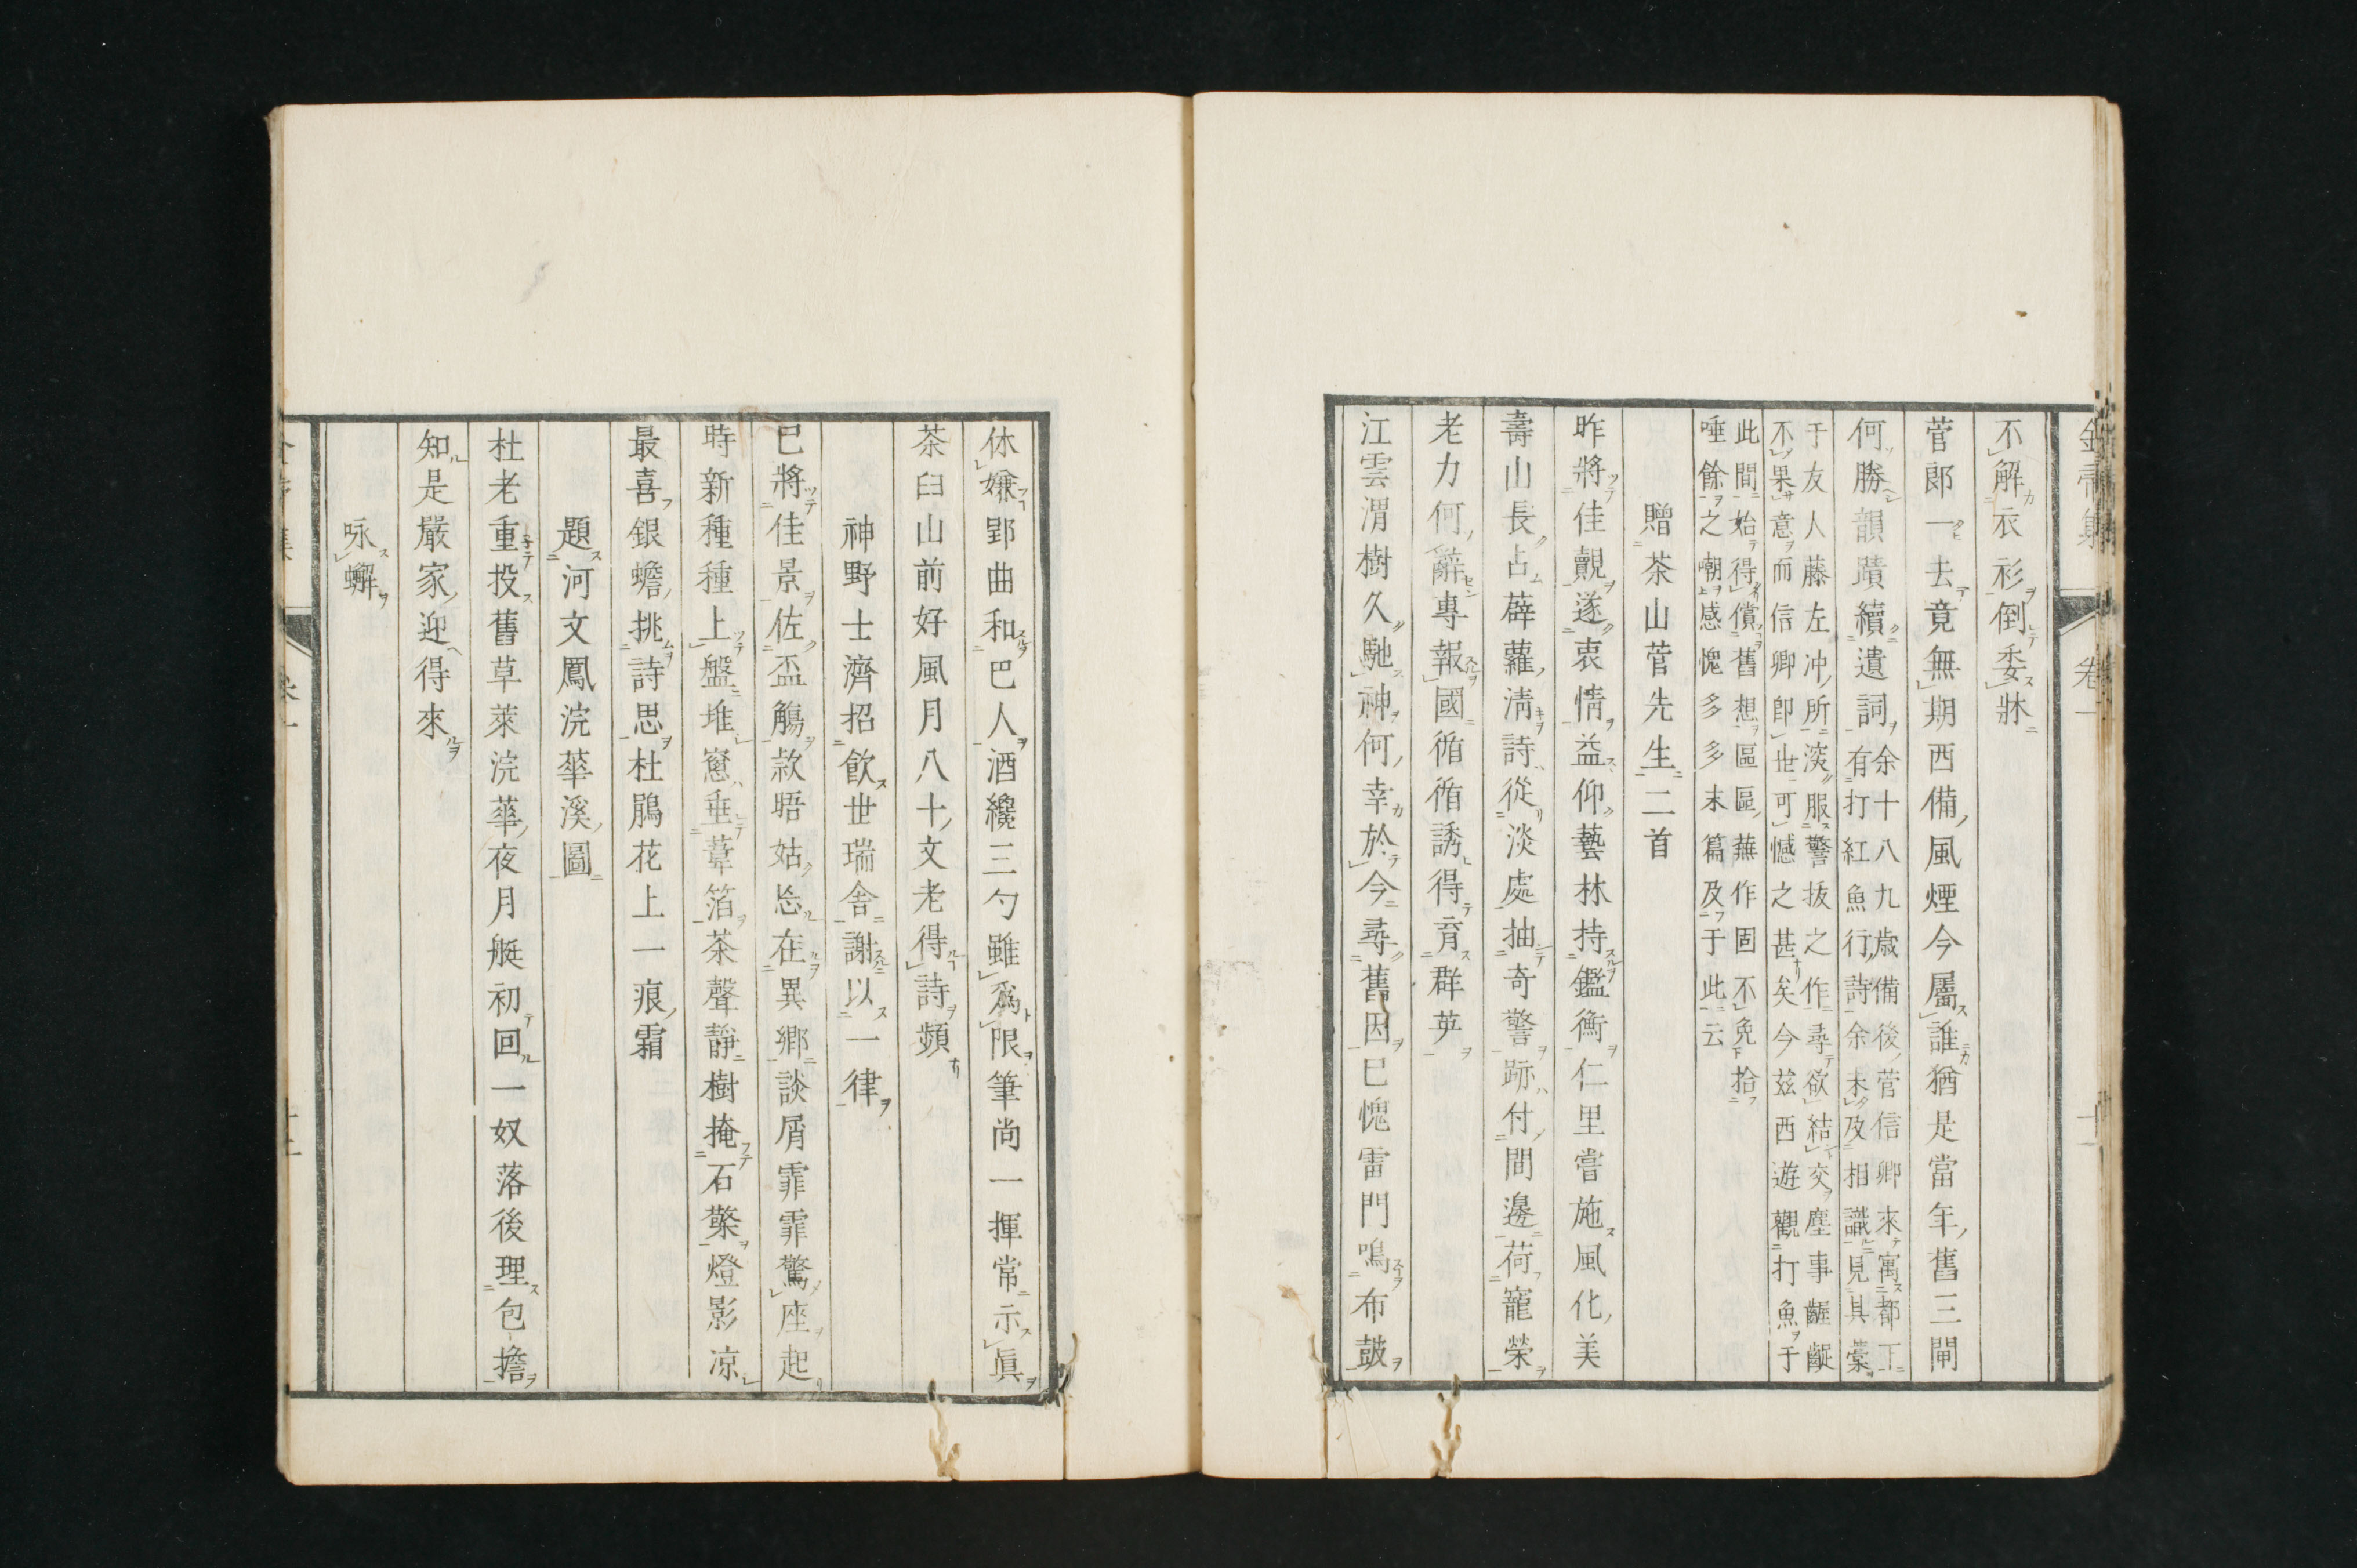 不解衣衫倒委牀
菅郎一去竟無期西備風煙今屬誰猶是當年舊三閘
何勝韻蹟續遺詞
余十八九歲備後菅信卿來寓都下
有打紅魚行詩余未及相識見其藁
于友人藤左冲所淡服警拔之作尋欲結交塵事齷齪
不果意而信卿卽世可憾之甚矣今茲西遊觀打魚于
此間始得償舊想區區蕪作固不免拾
唾餘之嘲感愧多多末篇及于此云
贈茶山菅先生二首
昨將佳覿遂衷情益仰藝林持鑑衡仁里嘗施風化美
壽山長占薜蘿淸詩從淡處抽奇警跡付間邊荷寵榮
老力何辭專報國循循誘得育群英
江雲渭樹久馳神何幸於今尋舊因已愧雷門鳴布皷
卷一
休嫌郢曲和巴人酒纔三勺雖爲限筆尚一揮常示眞
茶臼山前好風月八十文老得詩頻
神野士濟招飮世瑞舍謝以一律
已將佳景佐盃觴款晤姑忘在異鄉談屑霏霏驚座起
時新種種上盤堆窻垂葦箔茶聲靜樹掩石檠燈影凉
最喜銀蟾挑詩思杜鵑花上一痕霜
題河文鳳浣華溪圖
杜老重投舊草萊浣華夜月艇初回一奴落後理包擔
知是嚴家迎得來
咏蠏